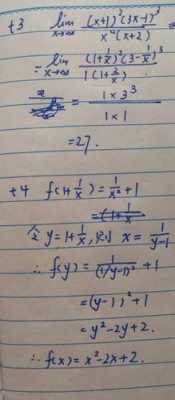 43 lim x→∞ (x+1)²(3x-1)³ / x⁴(x+2) =
= lim x→∞ (1+1/x)²(3-1/x)³ / 1(1+2/x)
= 1×3³ / 1×1
=27.
44 f(1+1/x)=1/x²+1
=(1+1/x
令y=1+1/x,则 x=1/(y-1)
∴f(y)=1/(1/y-1)²+1
=(y-1)²+1
=y²-2y+2.
∴f(x)=x²-2x+2.